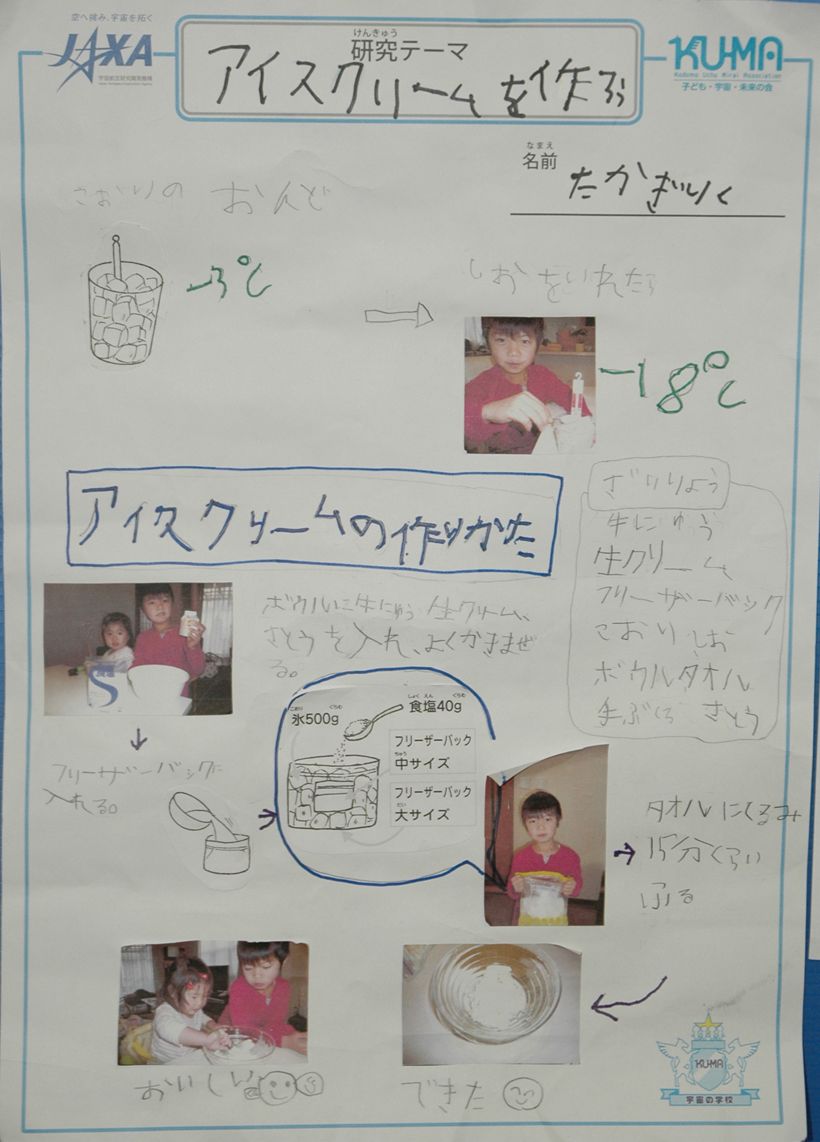 空へ挑み、宇宙を拓く
JAXA
宇宙航空研究開発機構
けんきゅう
研究テーマ
アイスクリームを作ろう
KU-MA
Kodomo Uchu Mirai Association
子ども・宇宙・未来の会
なまえ
名前
たかぎりく
こおりの おんど
-3℃
しおをいれたら
-18℃
アイスクリームの作りかた
ざいりょう
牛にゅう
生クリーム
フリーザーバック
こおり しお
ボウル タオル
手ぶくろ さとう
ボウルに牛にゅう 生クリーム、
さとうを入れ、よくかきまぜ
る。
フリーザーバックに
入れる。
こおり ぐらむ
氷500g
しょく えん ぐらむ
食塩40g
フリーザーバック
ちゅう
中サイズ
フリーザーバック
だい
大サイズ
タオルにくるみ
15分くらい
ふる
できた
おいしい
KU-MA
宇宙の学校